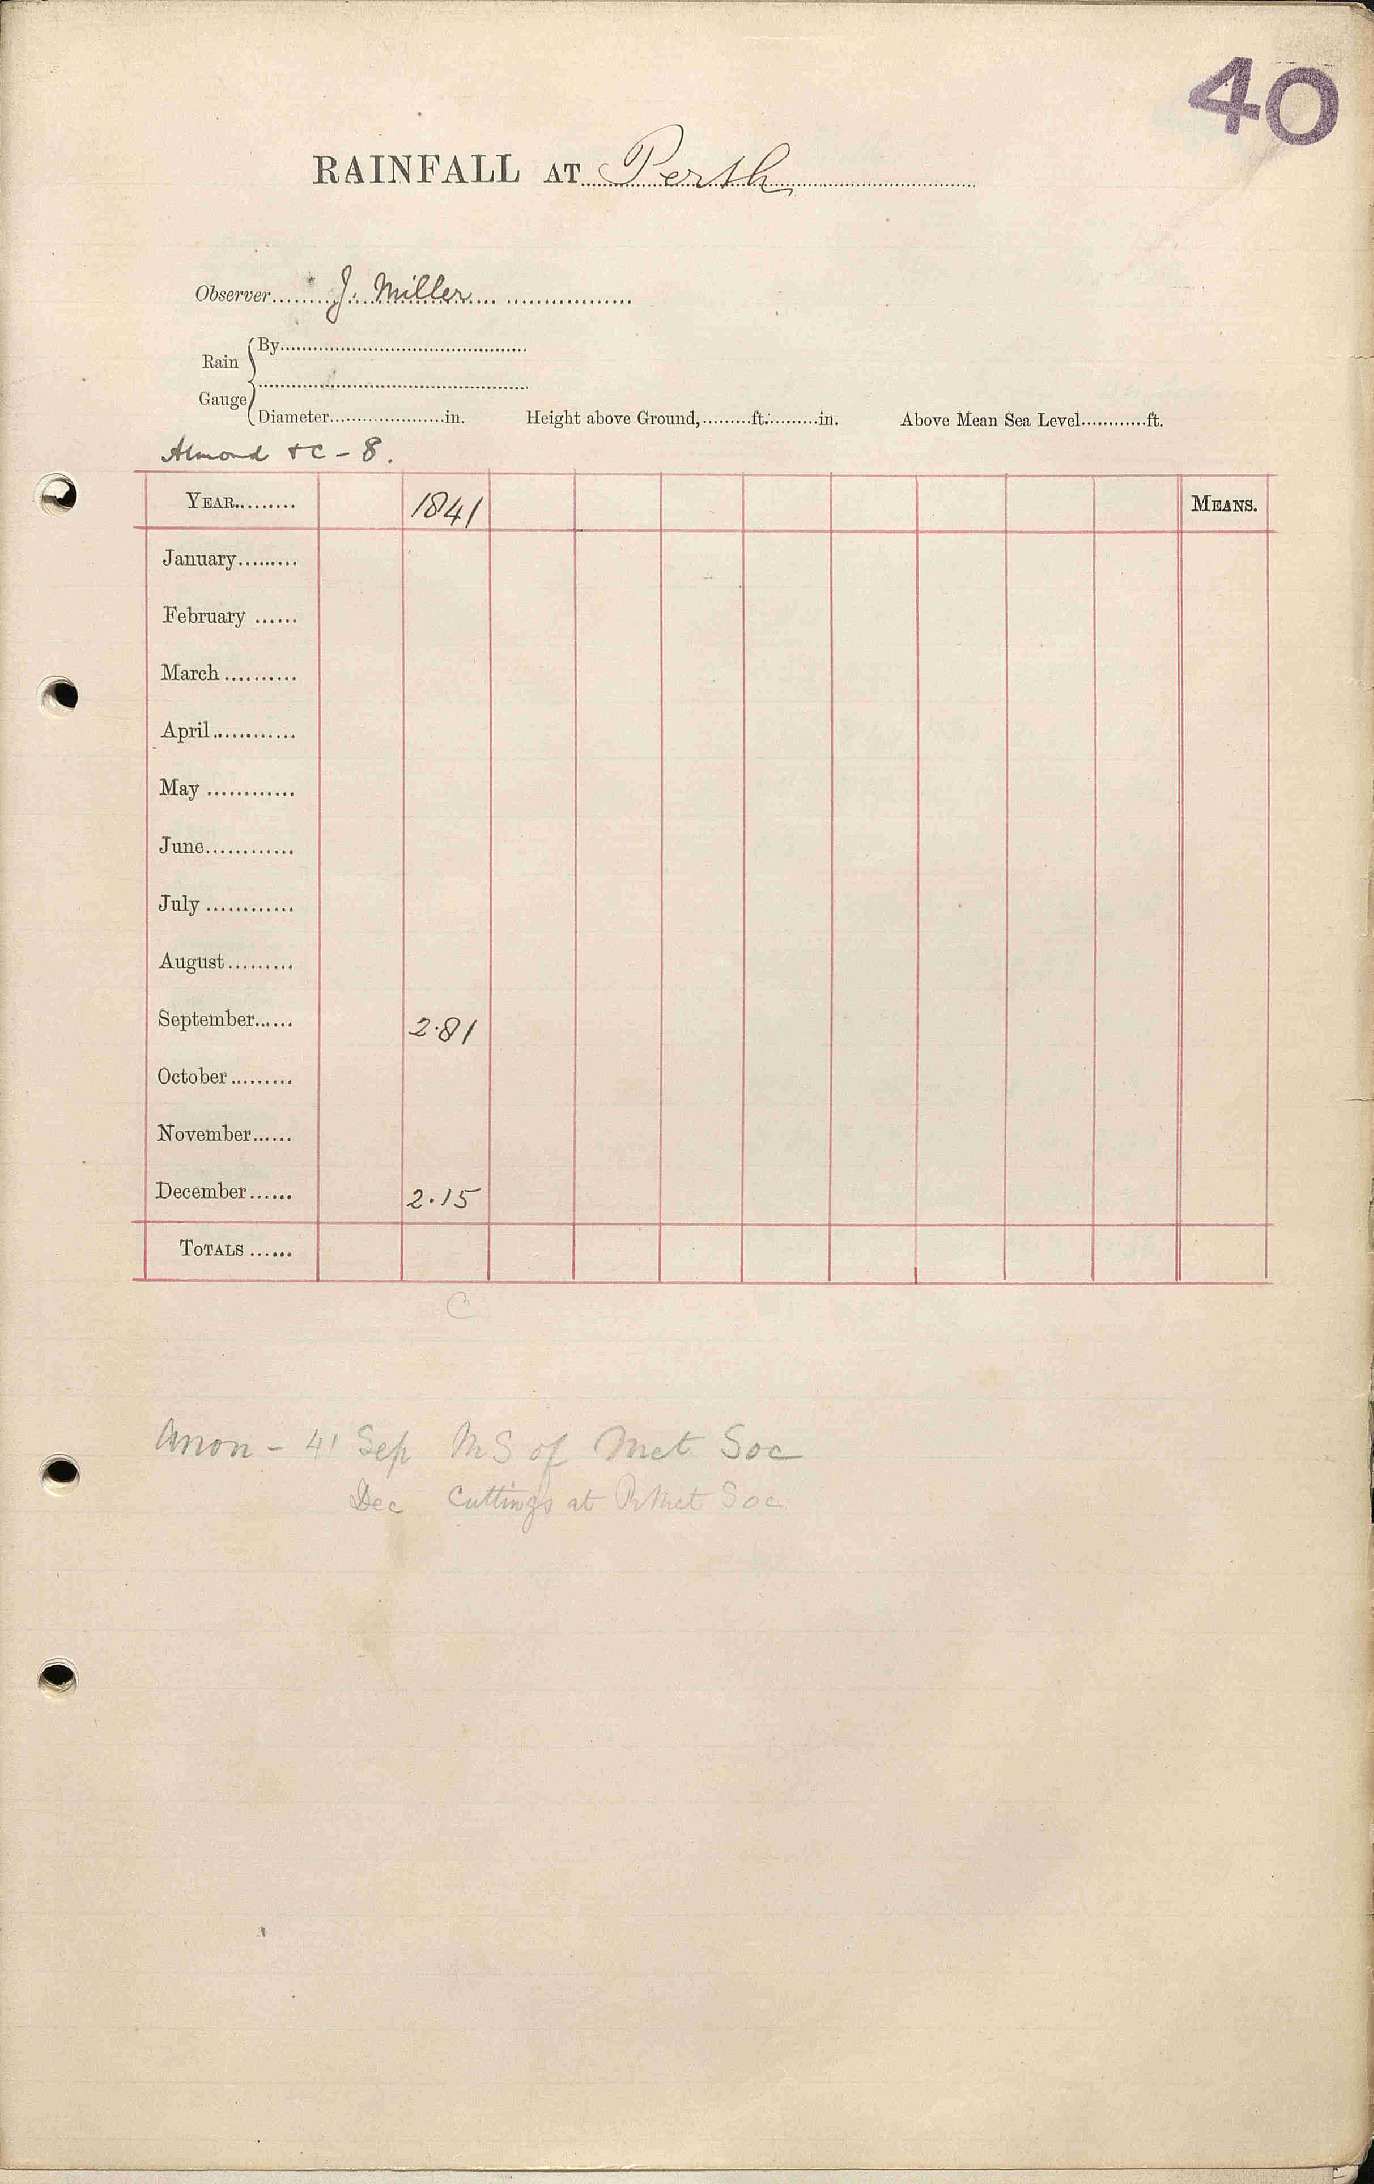 40
RAINFALL AT Perth
Observer J. Miller
Rain Gauge
By
Diameter in. Height above Ground, ft. in. Above Mean Sea Level ft.
Almond & C - 8.
YEAR 1841 MEANS.
January
February
March
April
May
June
July
August
September 2.81
October
November
December 2.15
TOTALS
C
Anon - 41 Sep MS of Met Soc
Dec Cuttings at Met Soc